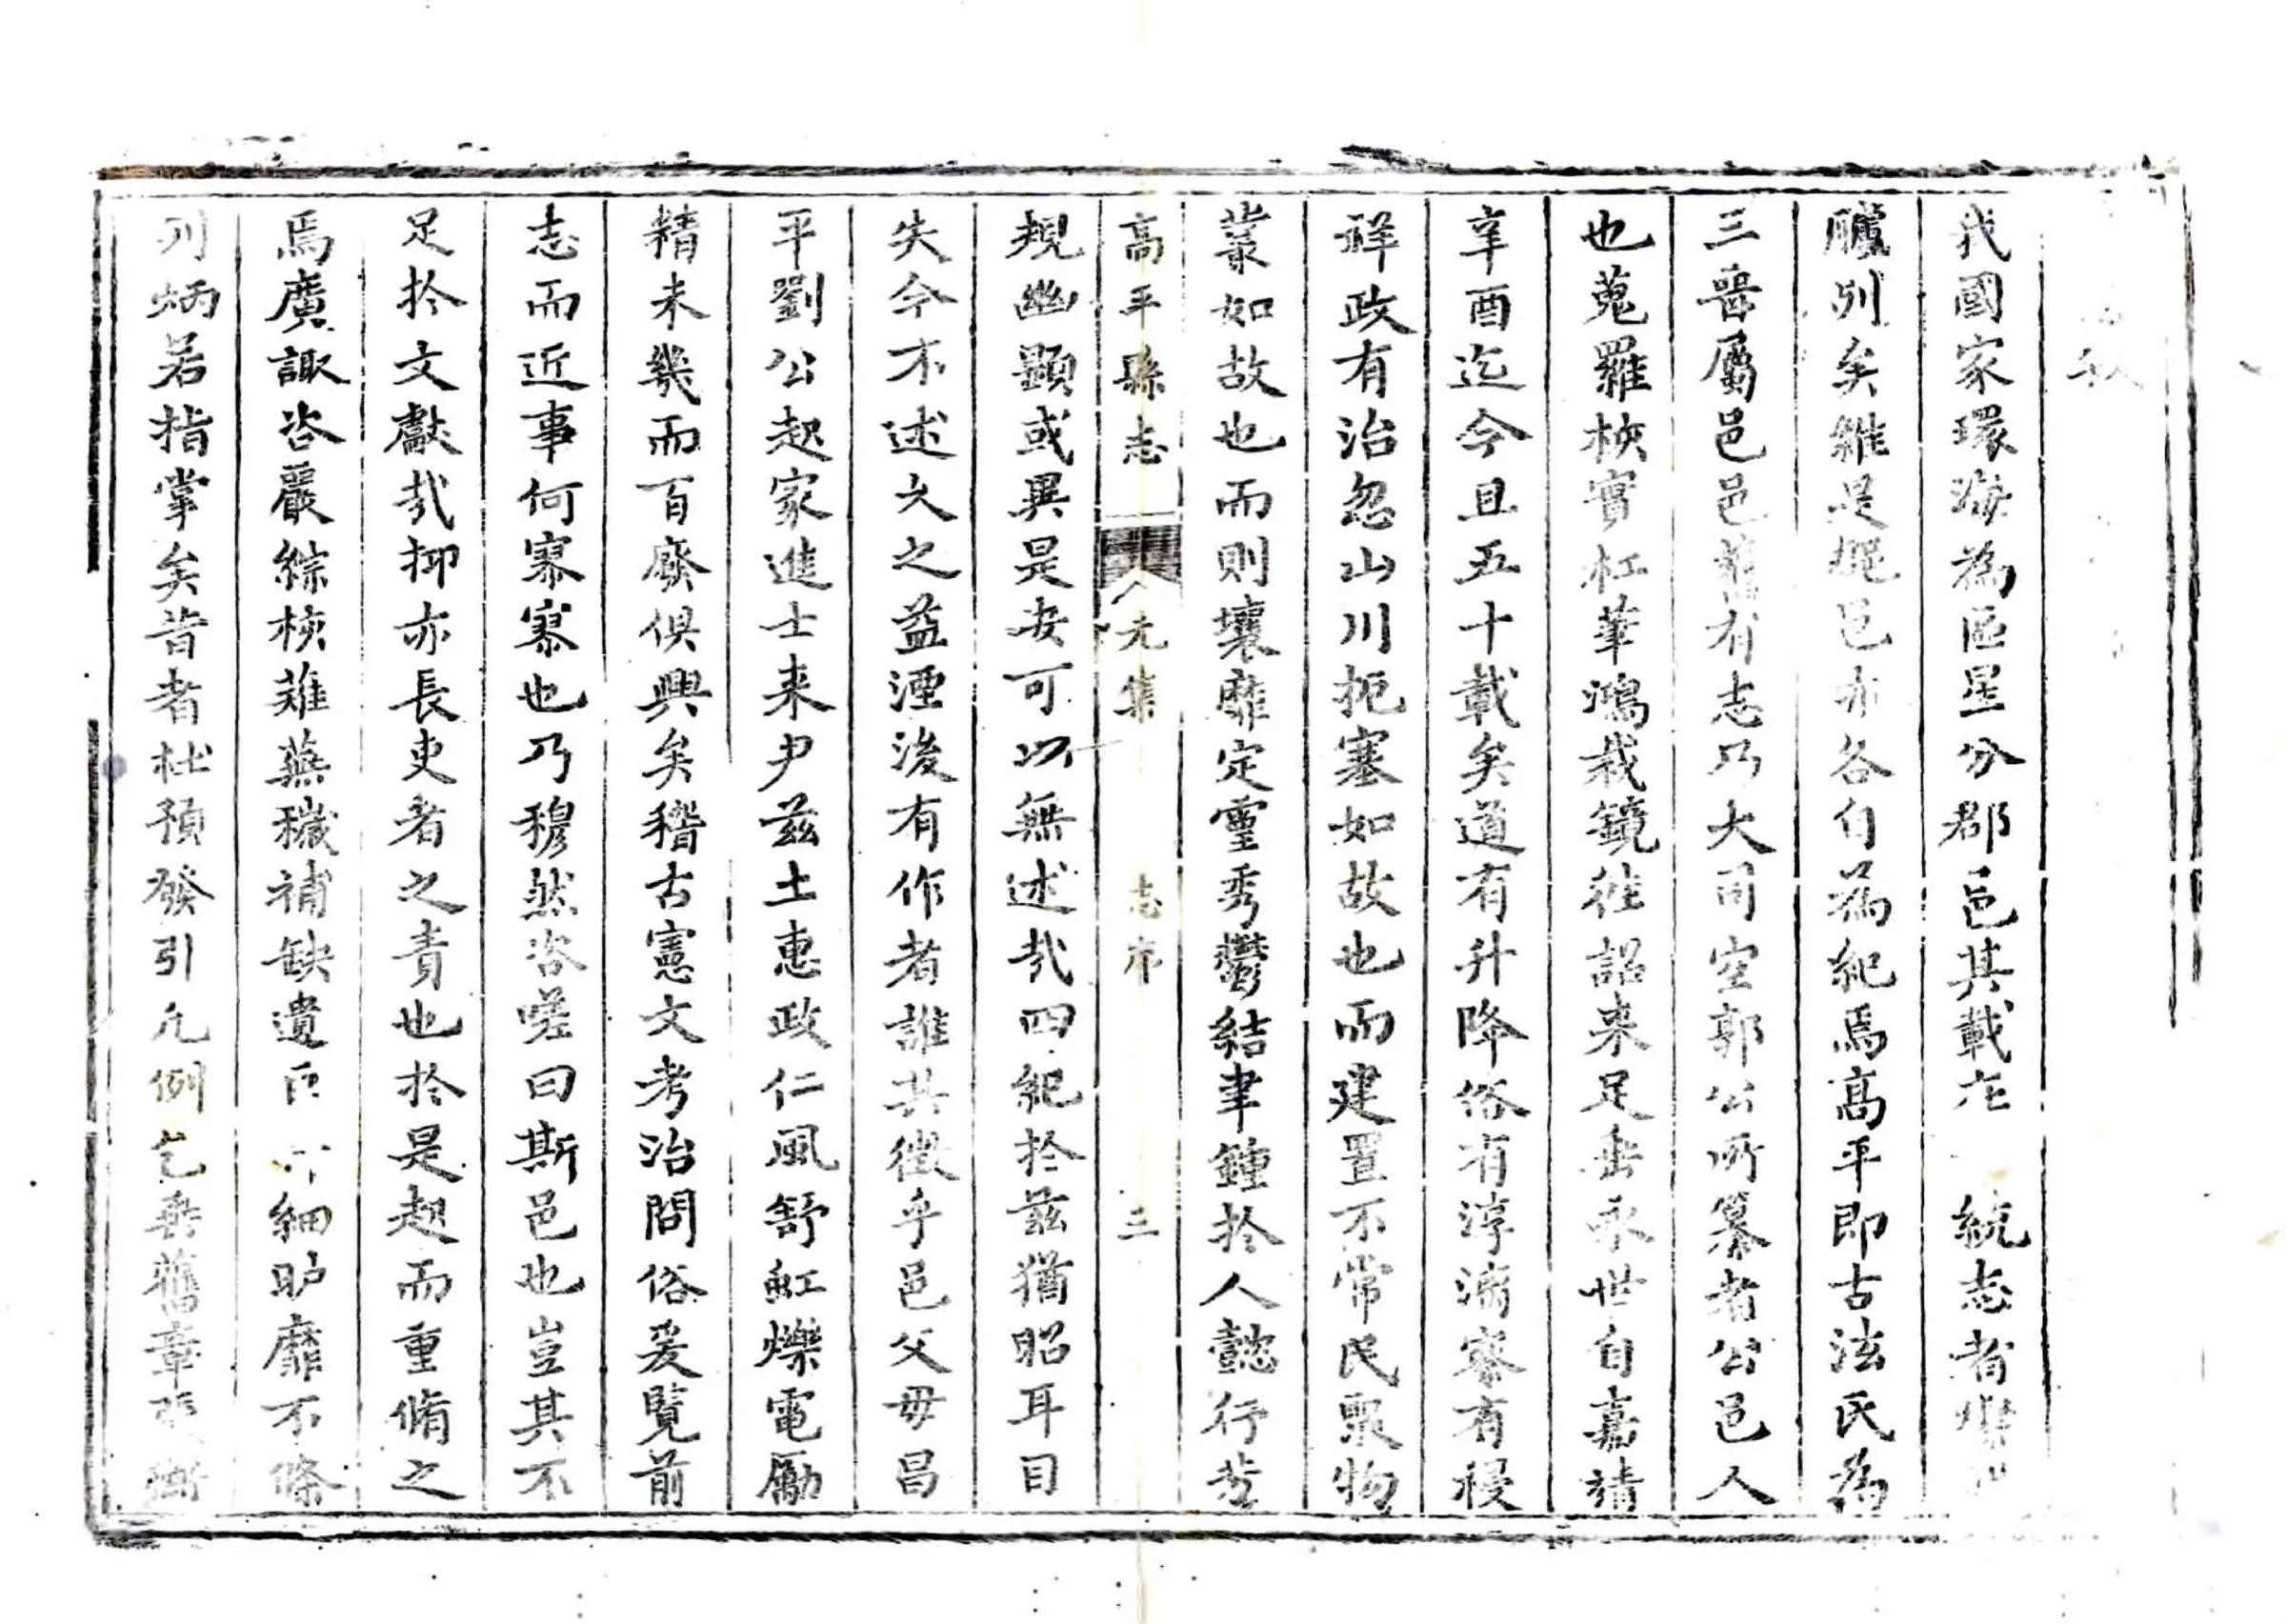 我國家環海為區星分郡邑其載在 統志者
臚列矣維是 邑亦各自為紀焉高平即古泫氏為
三晉屬邑邑舊有志乃大司空郭公所纂者公邑人
也蒐羅核實杠華鴻裁鏡徃詔来足垂永世自嘉靖
辛酉迄今且五十載矣道有升降俗有淳漓寮有祲
祥政有治忽山川扼塞如故也而建置不常民聚物
叢如故也而則壤靡定靈秀鬱結聿鍾扵人懿行
高平縣志 元集 志序 三
規幽顯或異是安可以無述哉四紀扵茲猶昭耳目
失今不述久之益湮後有作者誰其徵乎邑父毋昌
平劉公起家進士来尹茲土惠政仁風舒虹爍電勵
精未幾而百廢俱興矣稽古憲文考治問俗爰覧前
志而近事何寥寥也乃穆然咨嗟曰斯邑也豈其不
足扵文獻哉抑亦長吏者之責也扵是起而重脩之
焉廣諏咨嚴綜核薙蕪穢補缺遺巨 細 靡不條
列炳若指掌矣昔者杜預發引凢例 舊章